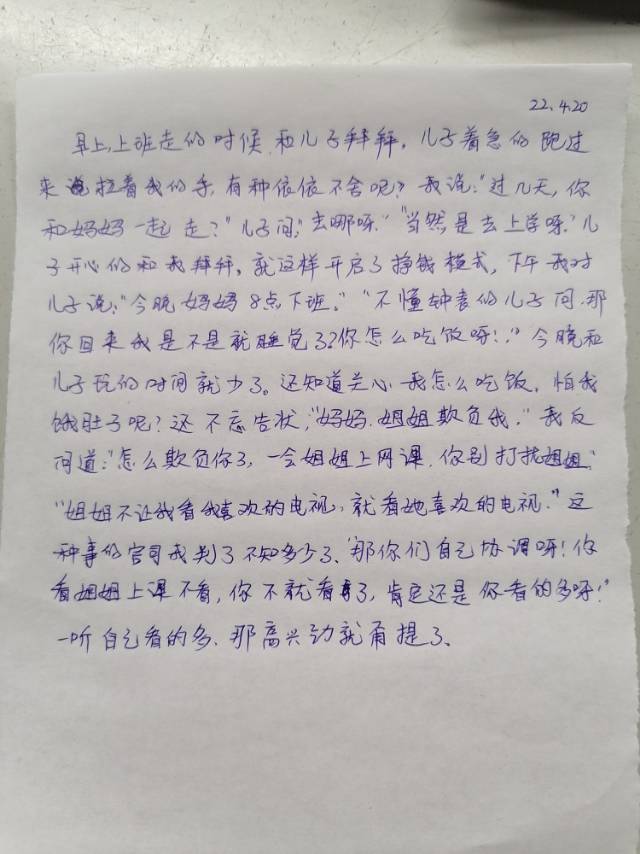 22.4.20
早上,上班走的时候,和儿子拜拜,儿子着急的跑过
来拉着我的手,有种依依不舍呢?我说:“过几天,你
和妈妈一起走?”儿子问:“去哪呀.”“当然是去上学呀.”儿
子开心的和我拜拜,就这样开启了挣钱模式,下午我对
儿子说:“今晚妈妈8点下班.”“不懂钟表的儿子问.那
你回来我是不是就睡觉了?你怎么吃饭呀!.”今晚和
儿子玩的时间就少了。还知道关心我怎么吃饭,怕我
饿肚子呢?还不忘告状,“妈妈.姐姐欺负我.”我反
问道:“怎么欺负你了,一会姐姐上网课.你别打扰姐姐”
“姐姐不让我看我喜欢的电视,就看她喜欢的电视.”这
种事的官司我判了不知多少了、“那你们自己协调呀!你
看姐姐上课不看,你不就看了,肯定还是你看的多呀!”
一听自己看的多.那高兴劲就甭提了.